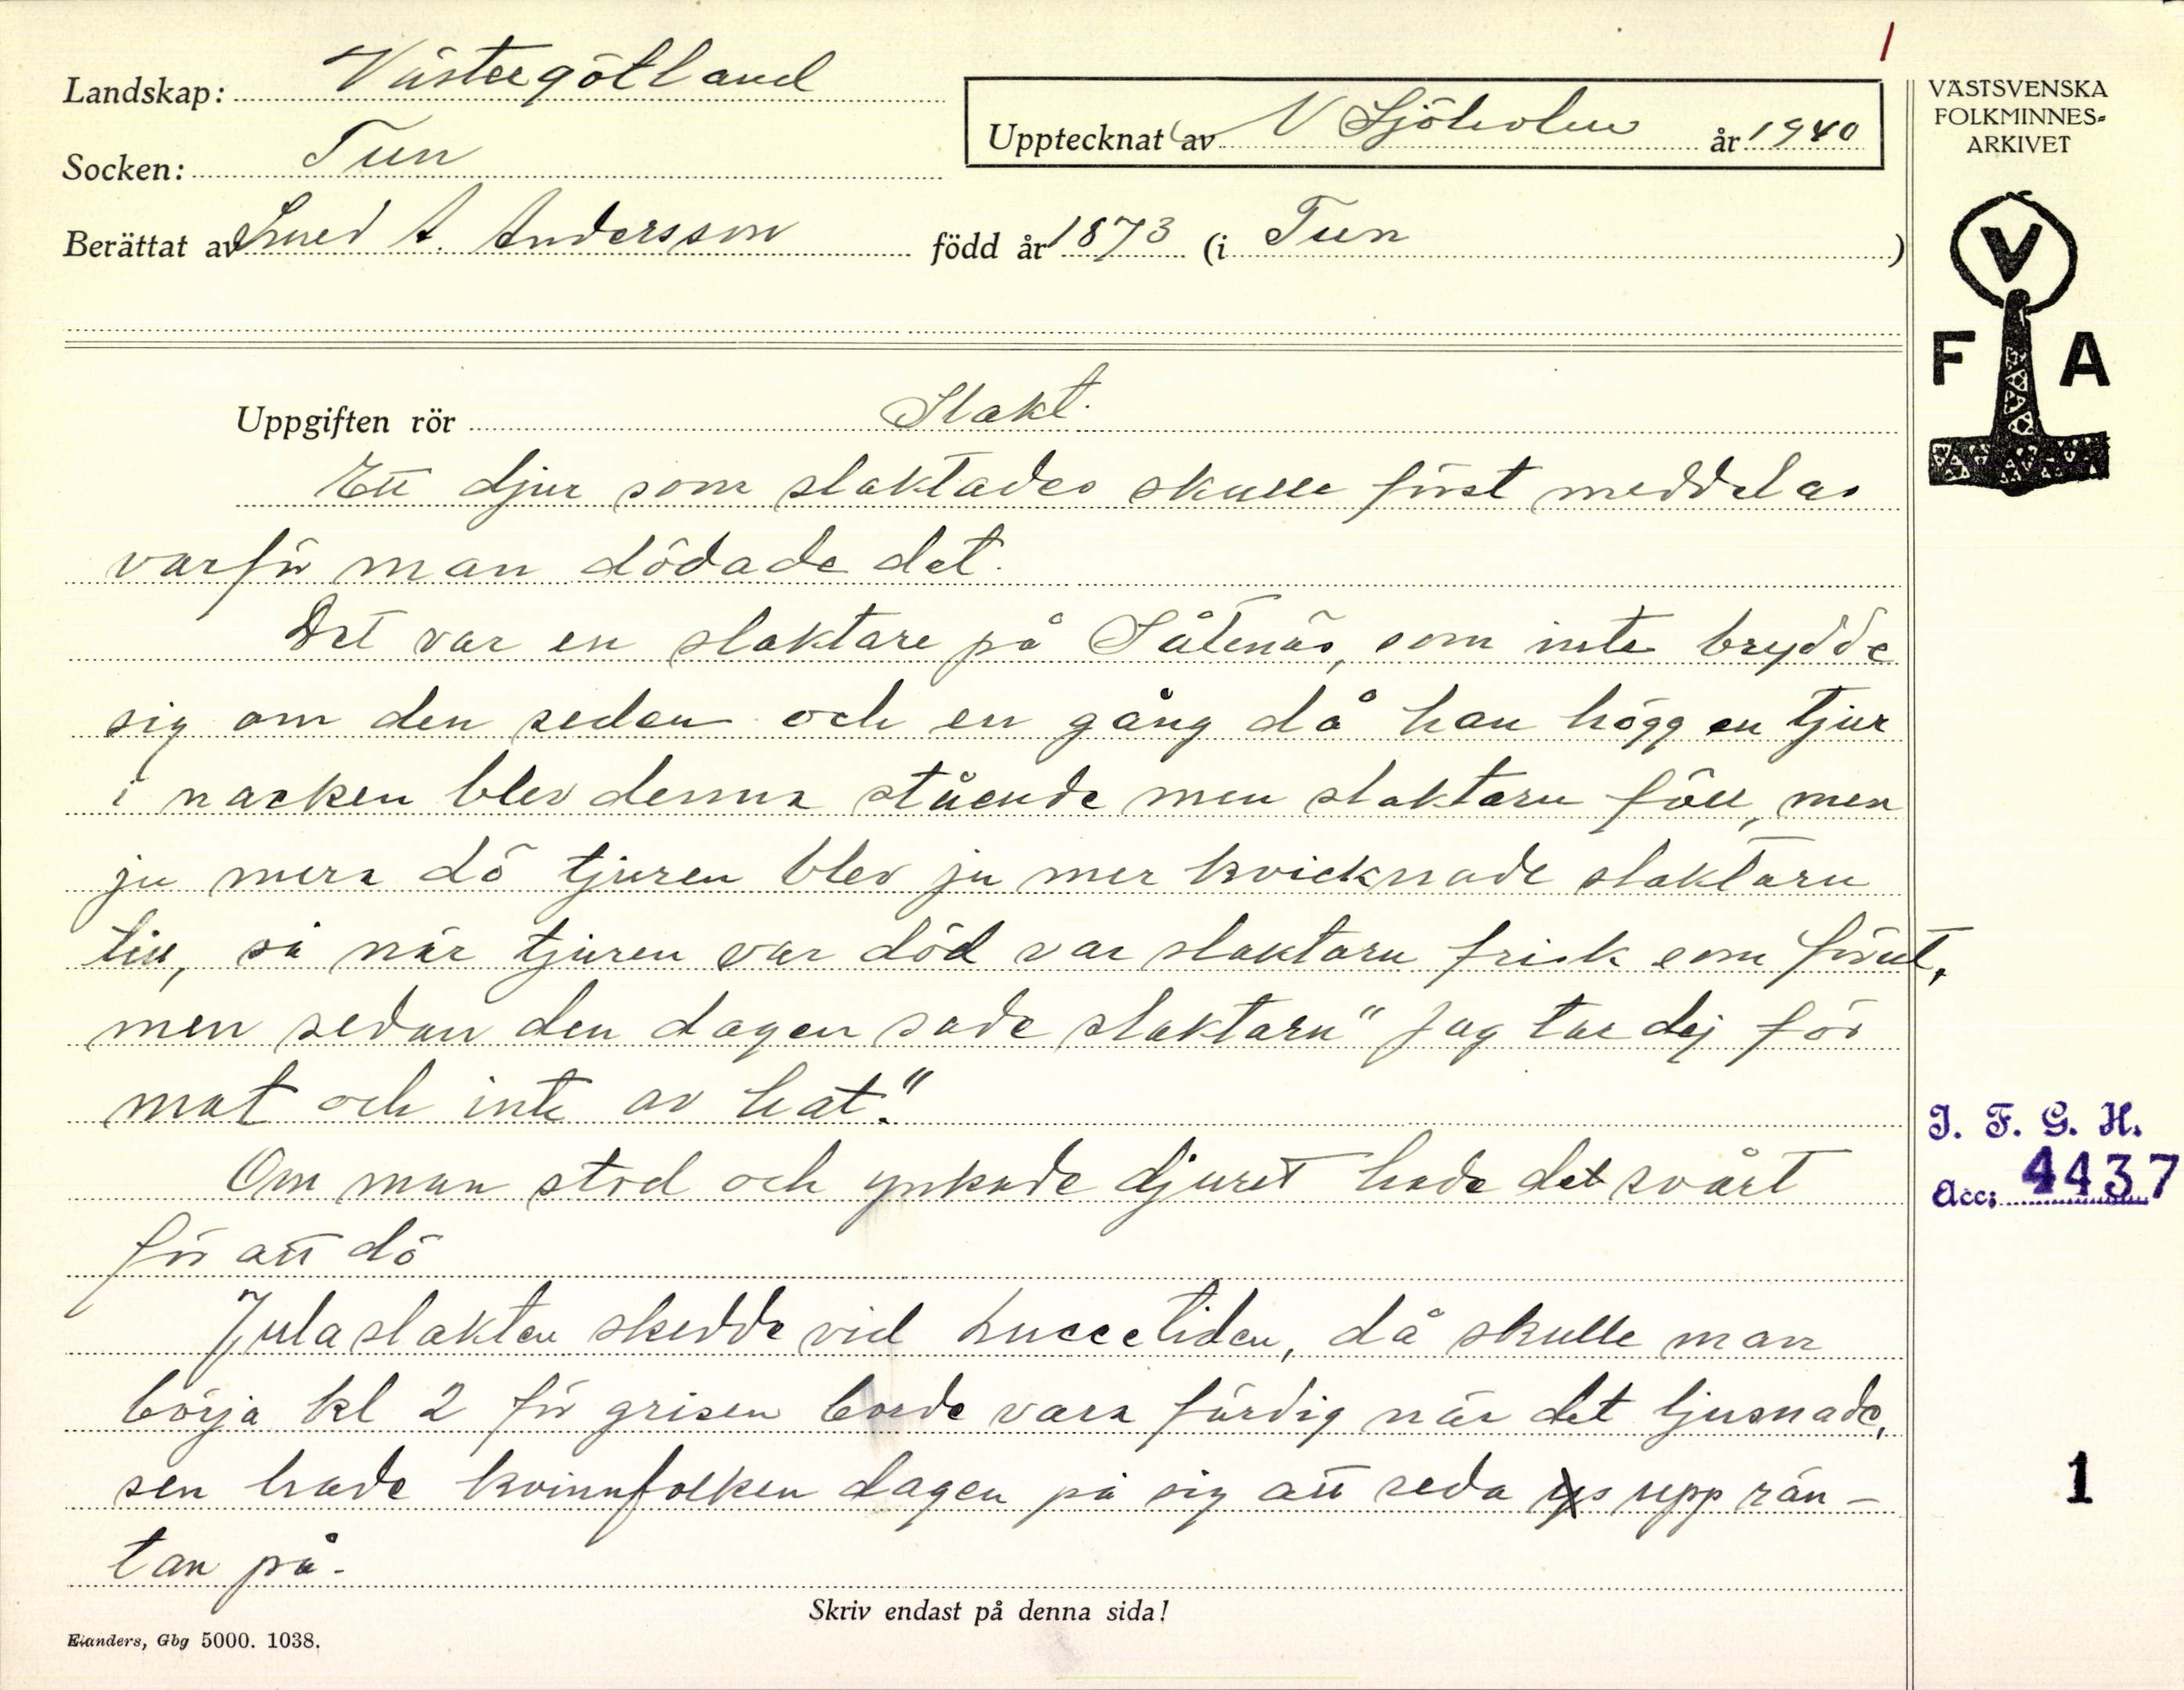 1
Landskap: Västergötland
Upptecknat av N Sjöholm år 1940
VÄSTSVENSKA
FOLKMINNES=
ARKIVET
Socken: Tun
Berättat av Smed A. Andersson född år 1873 (i Tun )
V
F A
Uppgiften rör Slakt.
Ett djur som slaktades skulle först meddelas
varför man dödade det.
Det var en slaktare på Såtenäs, som inte brydde
sig om den seden och en gång då han högg en tjur
i nacken blev denna stående men slaktarn föll, men
ju mera dö tjuren blev ju mer kvicknade slaktarn
till, så når tjuren var död var slaktarn frisk som förut,
men sedan den dagen sade slaktarn "Jag tar dej för
mat och inte av hat."
Om man stod och ynkade djuret hade det svårt
för att dö
Julaslakten skedde vid Luccetiden, då skulle man
börja kl 2 för grisen borde vara färdig när det ljusnade,
sen hade kvinnfolken dagen på sig att reda upp rän-
tan på.
J. F. G. H.
Acc: 4437
1
Skriv endast på denna sida!
Elanders, Gbg 5000. 1038.